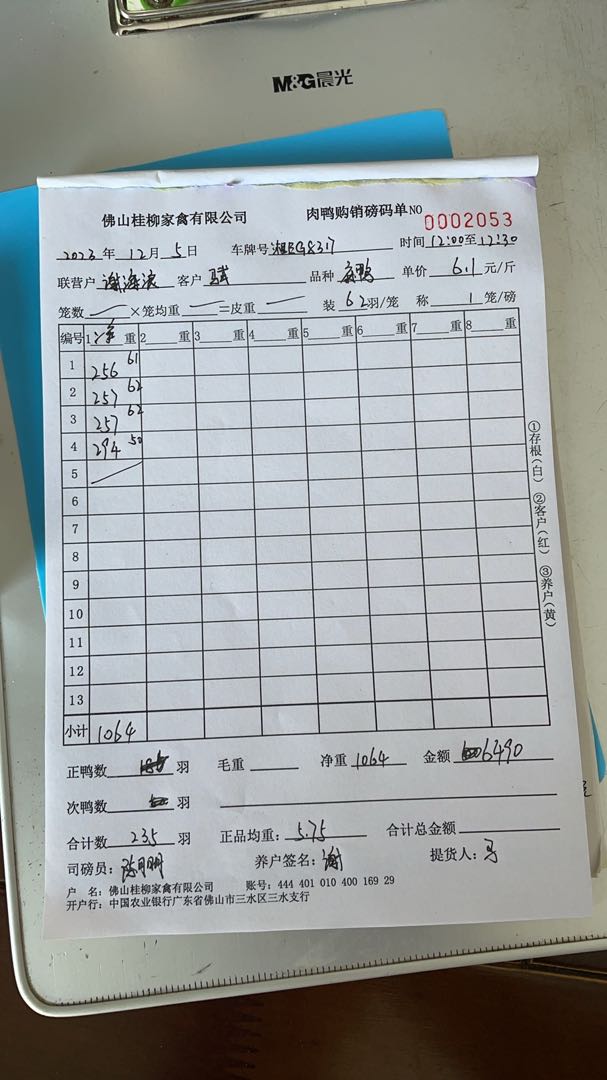 M&G晨光
佛山桂柳家禽有限公司 肉鸭购销磅码单NO 0002053
2023年12月5日 车牌号湘EG8317 时间12:00至12:30
联营户 谢海滨 客户 品种 麻鸭 单价 6.1 元/斤
笼数 ×笼均重 =皮重 装 62羽/笼 称 1 笼/磅
编号 1 净 重 2 重 3 重 4 重 5 重 6 重 7 重 8 重
1 256 61
2 257 62
3 257 62
4 294 50
5
6
7
8
9
10
11
12
13
小计 1064
①存根(白) ②客户(红) ③养户(黄)
正鸭数 羽 毛重 净重 1064 金额 6490
次鸭数 羽
合计数 235 羽 正品均重: 5.75 合计总金额
司磅员: 陈明 养户签名: 谢 提货人: 马
户 名: 佛山桂柳家禽有限公司 账号: 444 401 010 400 169 29
开户行: 中国农业银行广东省佛山市三水区三水支行